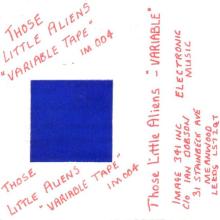 THOSE
LITTLE ALIENS
"VARIABLE TAPE"
IM 004
THOSE
LITTLE ALIENS
"VARIABLE TAPE"
IM 004
Those Little Aliens - "VARIABLE"
ELECTRONIC
MUSIC
IMAGE 341 INC
C/O IAN DOBSON
31 STAINBECK AVE
MEANWOOD
LEEDS LS7 2QT